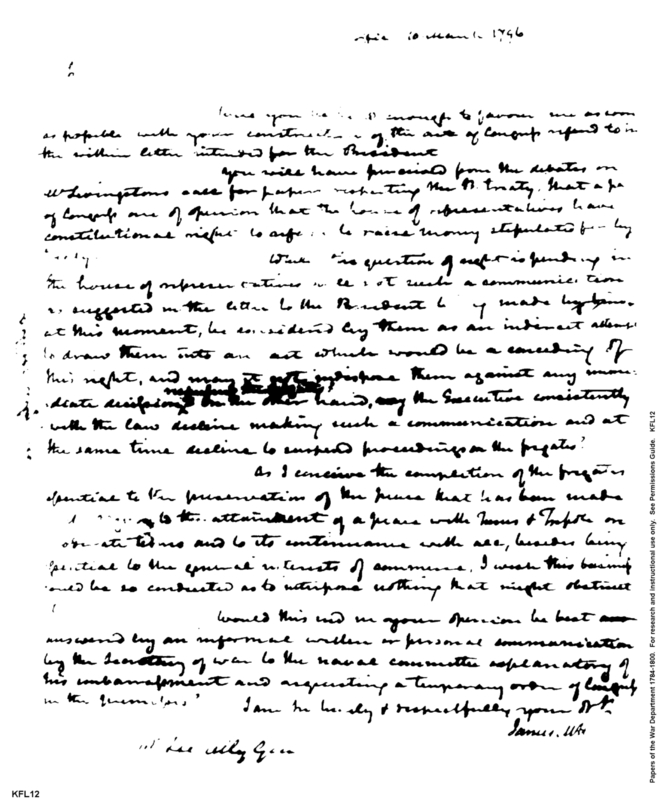 10 March 1796
you enough to favour me as soon
as possible with your construction of the act of Congress referd to in
the within letter intended for the President
You will have perceived from the debates on
Mr Livingstons call for papers respecting the B. Treaty. that a pa
of Congress are of opinion that the house of representatives have
constitutional right to to raise money stipulated for by
question of right is pending in
the house of representatives not such a communication
as suggested in the letter to the President made by him
at this moment, be considered by them as an indirect attempt
to draw them into an act which would be a conceding of
this right, and may it not indispose them against any imme-
diate decision on the other hand, may the Executive consistently
with the law decline making such a communication and at
the same time decline to suspend proceedings on the frigates?
As I conceive the completion of the frigates
essential to the preservation of the peace that has been made
to the attainment of a peace with Tunis & Tripoli on
terms and to its continuance with all, besides being
essential to the general interests of commerce, I wish this business
could be so conducted as to interpose nothing that might obstruct
Would this end in your opinion be best
answered by an informal written or personal communication
by the Secretary of war to the naval committe explanatory of
his embarrassment and requesting a temporary order of Congress
in the
I am Sir truly & respectfully your St
James
Lee Atty Gen
KFL12
Papers of the War Department 1784-1800. For research and instructional use only. See Permissions Guide. KFL12